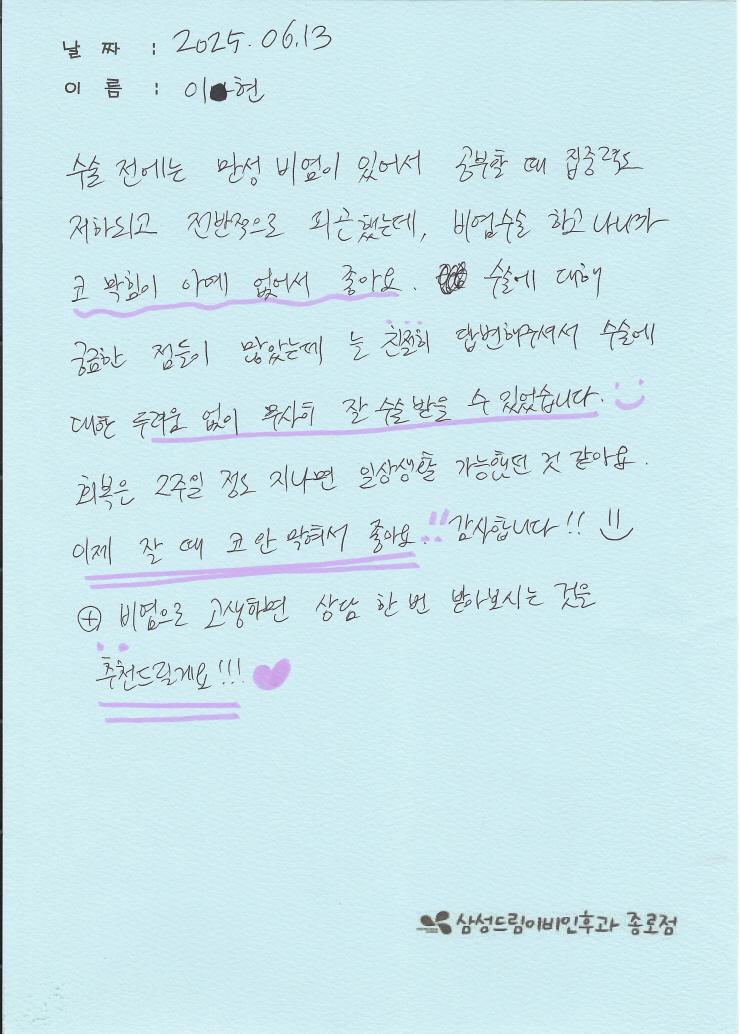 날 짜 : 2025.06.13
이 름 : 이 현
수술 전에는 만성 비염이 있어서 공부할 때 집중력도
저하되고 전반적으로 피곤했는데, 비염수술 하고 나니까
코 막힘이 아예 없어서 좋아요. 수술에 대해
궁금한 점들이 많았는데 늘 친절히 답변해주셔서 수술에
대한 두려움 없이 무사히 잘 수술 받을 수 있었습니다.
회복은 2주일 정도 지나면 일상생활 가능했던 것 같아요.
이제 잘 때 코 안 막혀서 좋아요!! 감사합니다!!
⊕ 비염으로 고생하면 상담 한 번 받아보시는 것을
추천드릴게요!!!
삼성드림이비인후과 종로점